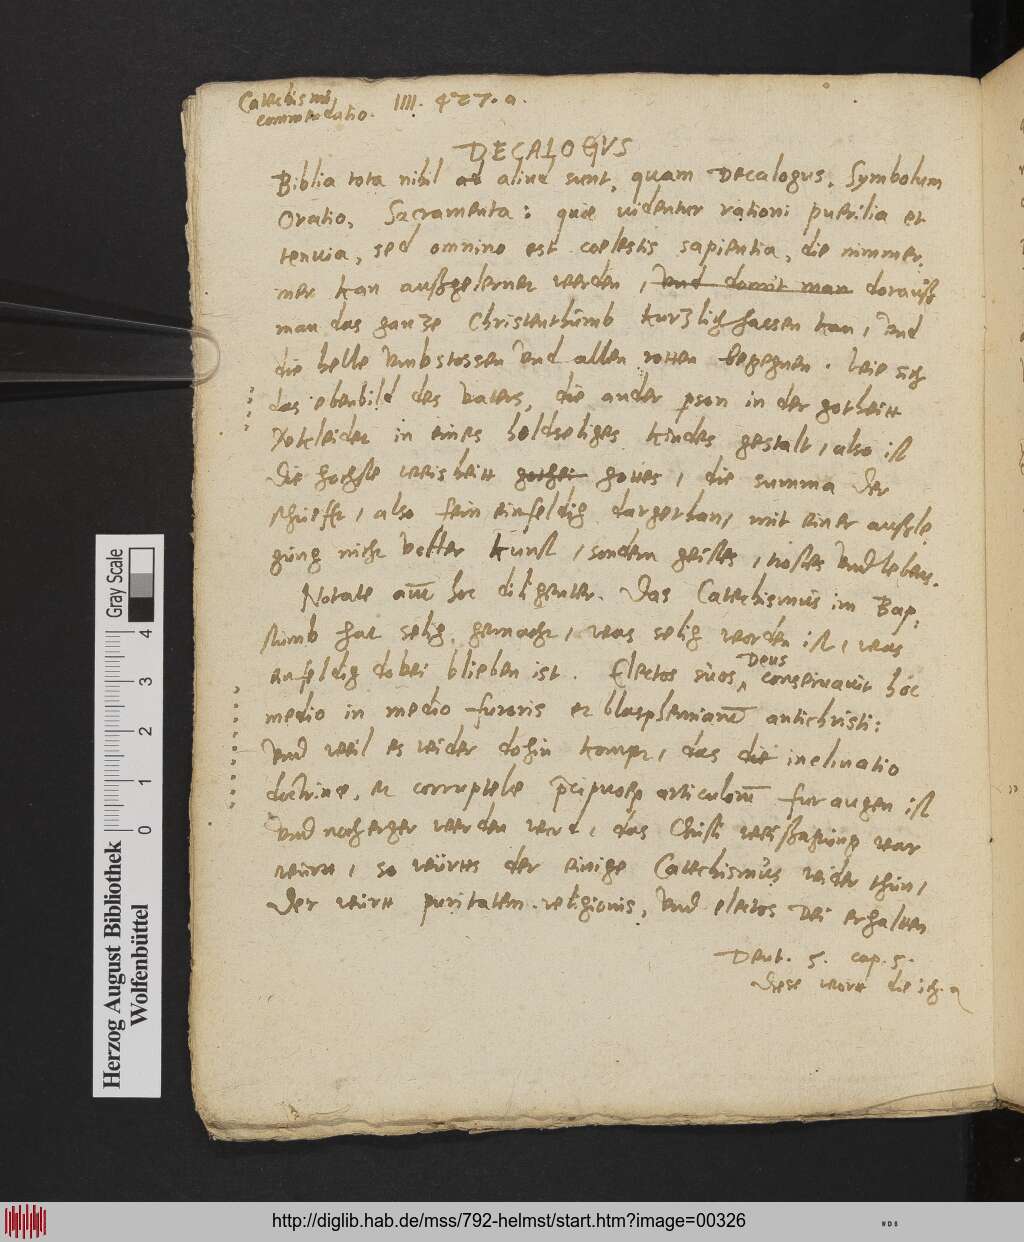 Catechismi
commendatio.
IIII. 427. a.
DECALOGVS
Biblia tota nihil aliud sunt, quam Decalogus, Symbolum
Oratio, Sacramenta: quae videntur rationi puerilia et
tenuia, sed omnino est coelestis sapientia, die nimmer,
mer kan außgelernet werden, vnd damit man dorauß
man das ganze Christenthumb kurzlich fassen kan, vnd
die helle vmbstossen vnd allen rotten begegnen. Wie sich
das ebenbild des vaters, die ander pson in der gotheitt
kleidet in eines holdseliges kindes gestalt, also ist
die hochste weisheitt gottes, die summa der
schrifft, also fein einfeldig dargethan, mit einer außle
gung nicht kunst, sondern geistes, trostes vnd lebens.
Notate autē hoc diligenter. Das Catechismus im Bap,
tismb hat selig gemacht, was selig worden ist, was
einfeldig dobei blieben ist. Electos suos, Deus conseruauit hoc
medio in medio furoris et blasphemiarū antichristi:
vnd weil es wider dohin kompt, das die inclinatio
doctrinae, et corruptelae p̄cipuorū articulorū fur augen ist
vnd noch erger werden wird, das Christi weissagung war
wurtt, so württs der einige Catechismus wider thun,
der württ puritatem religionis, vnd electos Dei erhalten
Deut. 5. cap. 5.
diese wortt die ich. a
Gray Scale
4
3
2
1
0
Herzog August Bibliothek
Wolfenbüttel
http://diglib.hab.de/mss/792-helmst/start.htm?image=00326